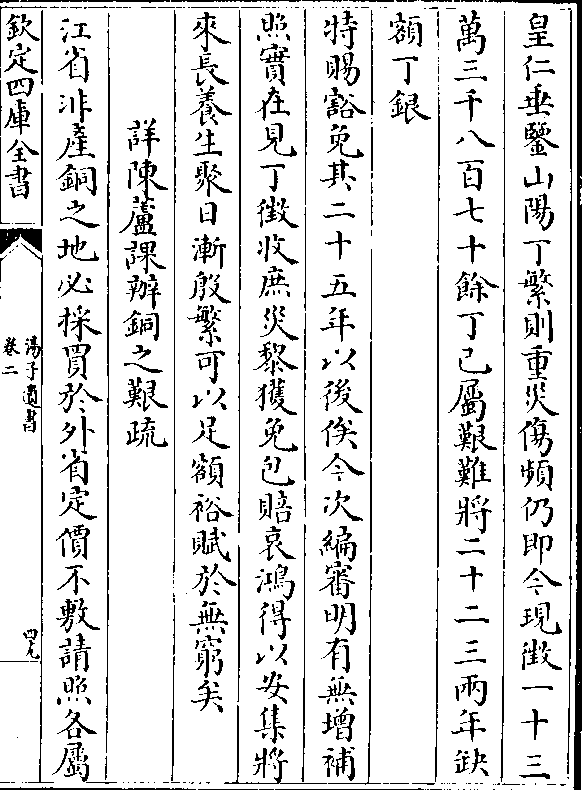 皇仁垂鑒山陽丁繁則重災傷頻仍即令現徵一十三
萬三千八百七十餘丁已屬艱難將二十二三兩年缺
額丁銀
特賜豁免其二十五年以後俟今次編審明有無增補
照實在見丁徵收庶災黎獲免包賠哀鴻得以安集將
來長養生聚日漸殷繁可以足額裕賦於無窮矣
詳陳蘆課辦銅之艱疏
江省非產銅之地必採買於外省定價不敷請照各屬
欽定四庫全書
湯子遺書
卷二
四九